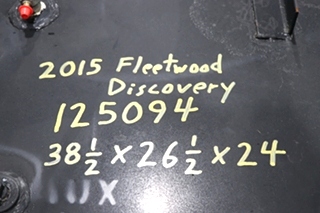 2015 Fleetwood
Discovery
125094
38 1/2 x 26 1/2 x 24